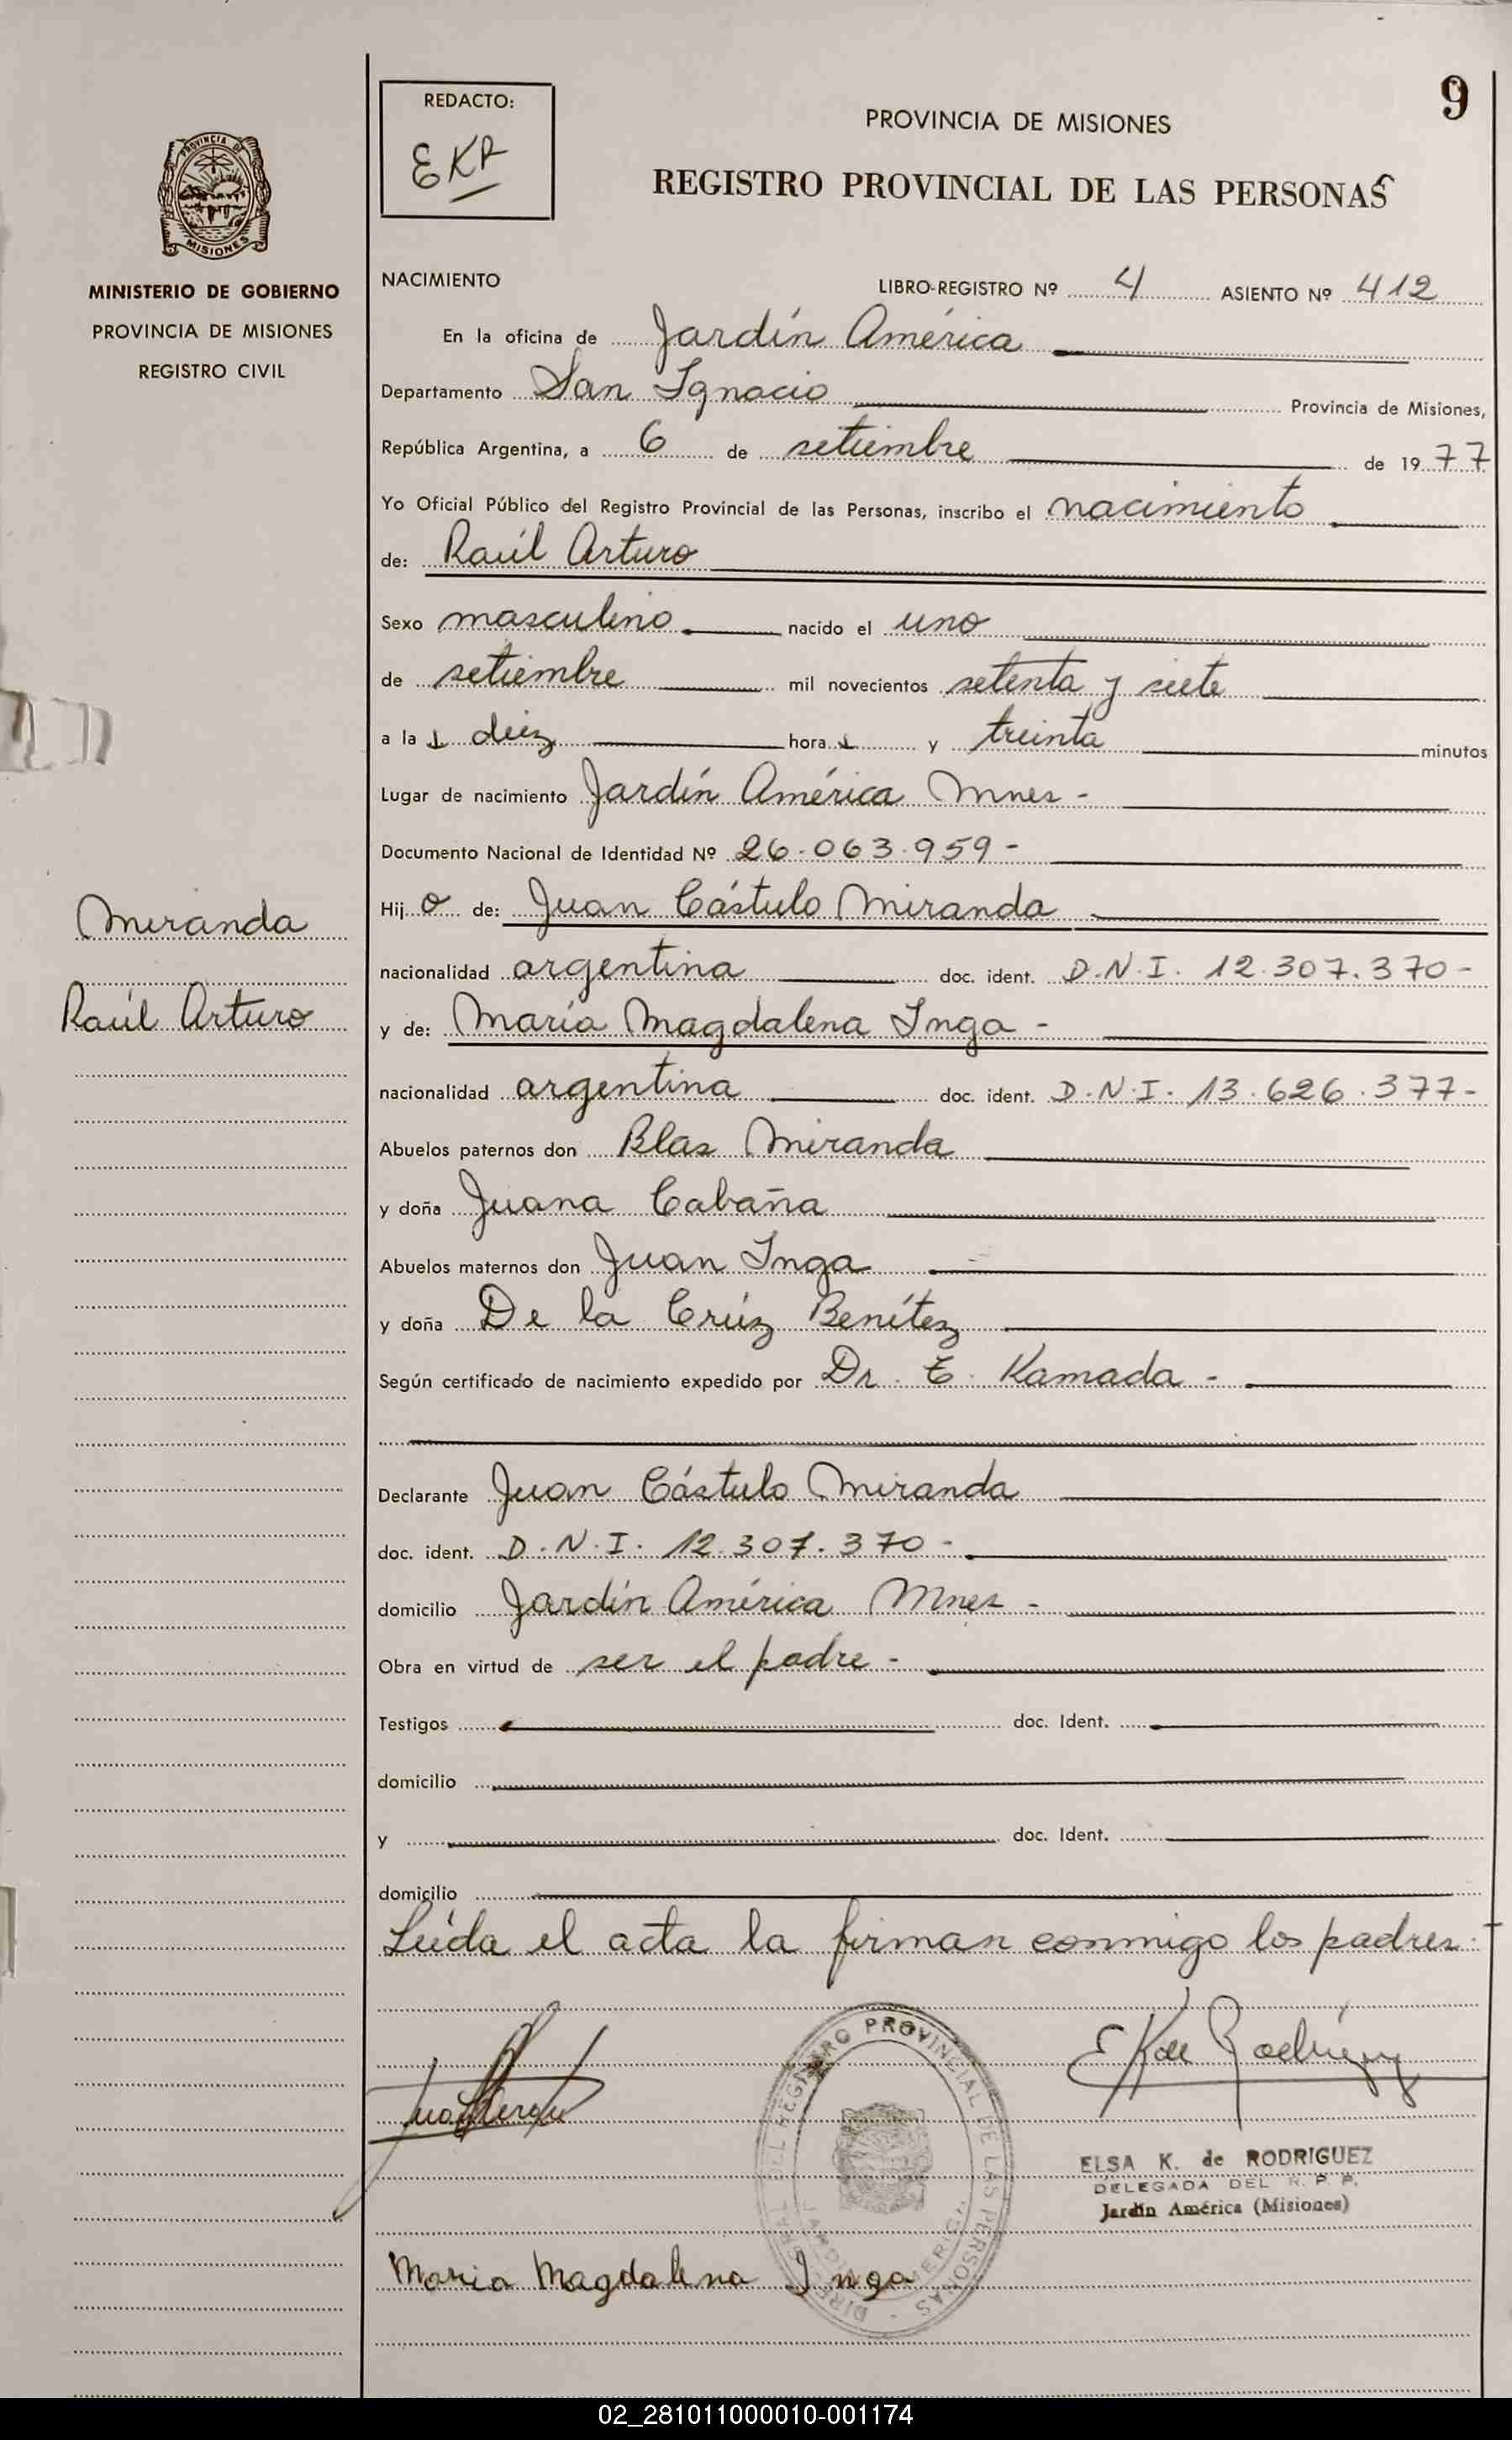 9
REDACTO:
EKR
PROVINCIA DE MISIONES
REGISTRO PROVINCIAL DE LAS PERSONAS
PROVINCIA DE
MISIONES
MINISTERIO DE GOBIERNO
PROVINCIA DE MISIONES
REGISTRO CIVIL
NACIMIENTO LIBRO-REGISTRO Nº 4 ASIENTO Nº 412
En la oficina de Jardín América
Departamento San Ignacio Provincia de Misiones,
República Argentina, a 6 de setiembre de 1977
Yo Oficial Público del Registro Provincial de las Personas, inscribo el nacimiento
de: Raúl Arturo
Sexo masculino nacido el uno
de setiembre mil novecientos setenta y siete
a las diez horas y treinta minutos
Lugar de nacimiento Jardín América Mnes -
Documento Nacional de Identidad Nº 26.063.959-
Miranda
Raúl Arturo
Hijo de: Juan Cástulo Miranda
nacionalidad argentina doc. ident. D.N.I. 12.307.370-
y de: María Magdalena Inga -
nacionalidad argentina doc. ident. D.N.I. 13.626.377-
Abuelos paternos don Blas Miranda
y doña Juana Cabaña
Abuelos maternos don Juan Inga
y doña De la Crúz Benítez
Según certificado de nacimiento expedido por Dr. E. Kamada -
Declarante Juan Cástulo Miranda
doc. ident. D.N.I. 12.307.370 -
domicilio Jardín América Mnes -
Obra en virtud de ser el padre -
Testigos doc. Ident.
domicilio
y doc. Ident.
domicilio
Leída el acta la firman conmigo los padres.
E K de Rodríguez
ELSA K. de RODRIGUEZ
DELEGADA DEL R. P. P.
Jardín América (Misiones)
REGISTRO PROVINCIAL DE LAS PERSONAS
Maria Magdalena Inga
02_281011000010-001174